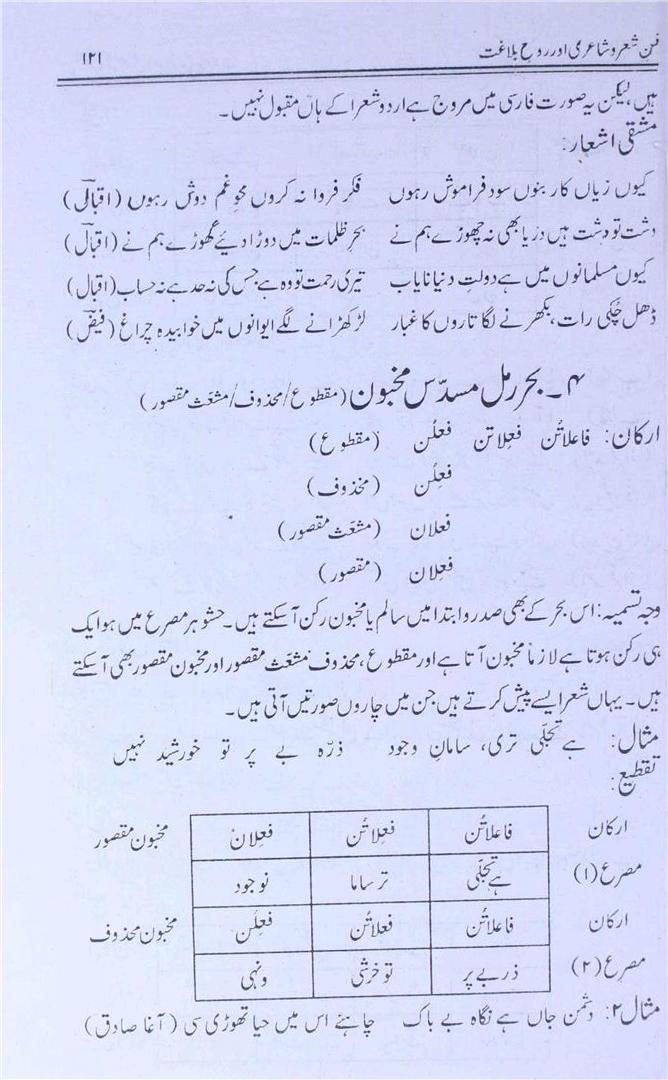 فنِ شعر و شاعری اور روحِ بلاغت ۱۲۱
ہیں، لیکن یہ صورت فارسی میں مروج ہے اردو شعرا کے ہاں مقبول نہیں۔
مشقی اشعار:
کیوں زیاں کار بنوں سود فراموش رہوں فکر فردا نہ کروں محوِ غمِ دوش رہوں (اقبالؔ)
دشت تو دشت ہیں دریا بھی نہ چھوڑے ہم نے بحرِ ظلمات میں دوڑا دئیے گھوڑے ہم نے (اقبالؔ)
کیوں مسلمانوں میں ہے دولت دنیا نایاب تیری رحمت تو وہ ہے جس کی نہ حد ہے نہ حساب (اقبال)
ڈھل چُکی رات، بکھرنے لگا تاروں کا غبار لڑکھڑانے لگے ایوانوں میں خوابیدہ چراغ (فیضؔ)
۴۔ بحر رمل مسدّس مخبون (مقطوع/محذوف/مشعّث مقصور)
ارکان: فاعلاتُن فعِلاتن فعلُن (مقطوع)
فعِلُن (محذوف)
فعلان (مشعّث مقصور)
فعِلان (مقصور)
وجہ تسمیہ: اس بحر کے بھی صدر و ابتدا میں سالم یا مخبون رکن آسکتے ہیں۔ حشو ہر مصرع میں ہو ایک
ہی رکن ہوتا ہے لازماً مخبون آتا ہے اور مقطوع، محذوف مشعّث مقصور اور مخبون مقصور بھی آسکتے
ہیں۔ یہاں شعر ایسے پیش کرتے ہیں جن میں چاروں صورتیں آتی ہیں۔
مثال: ہے تجلّی تری، سامانِ وجود ذرّہ بے پر تو خورشید نہیں
تقطیع:
ارکان فاعلاتُن فعِلاتُن فعِلان مخبون مقصور
مصرع (۱) ہے تجلّی تر ساما نو جود
ارکان فاعلاتُن فعِلاتُن فعِلُن مخبون محذوف
مصرع (۲) ذر بے پر تو خرشی ونہی
مثال ۲: دشمن جاں ہے نگاہ بے باک چاہئے اس میں حیا تھوڑی سی (آغا صادق)